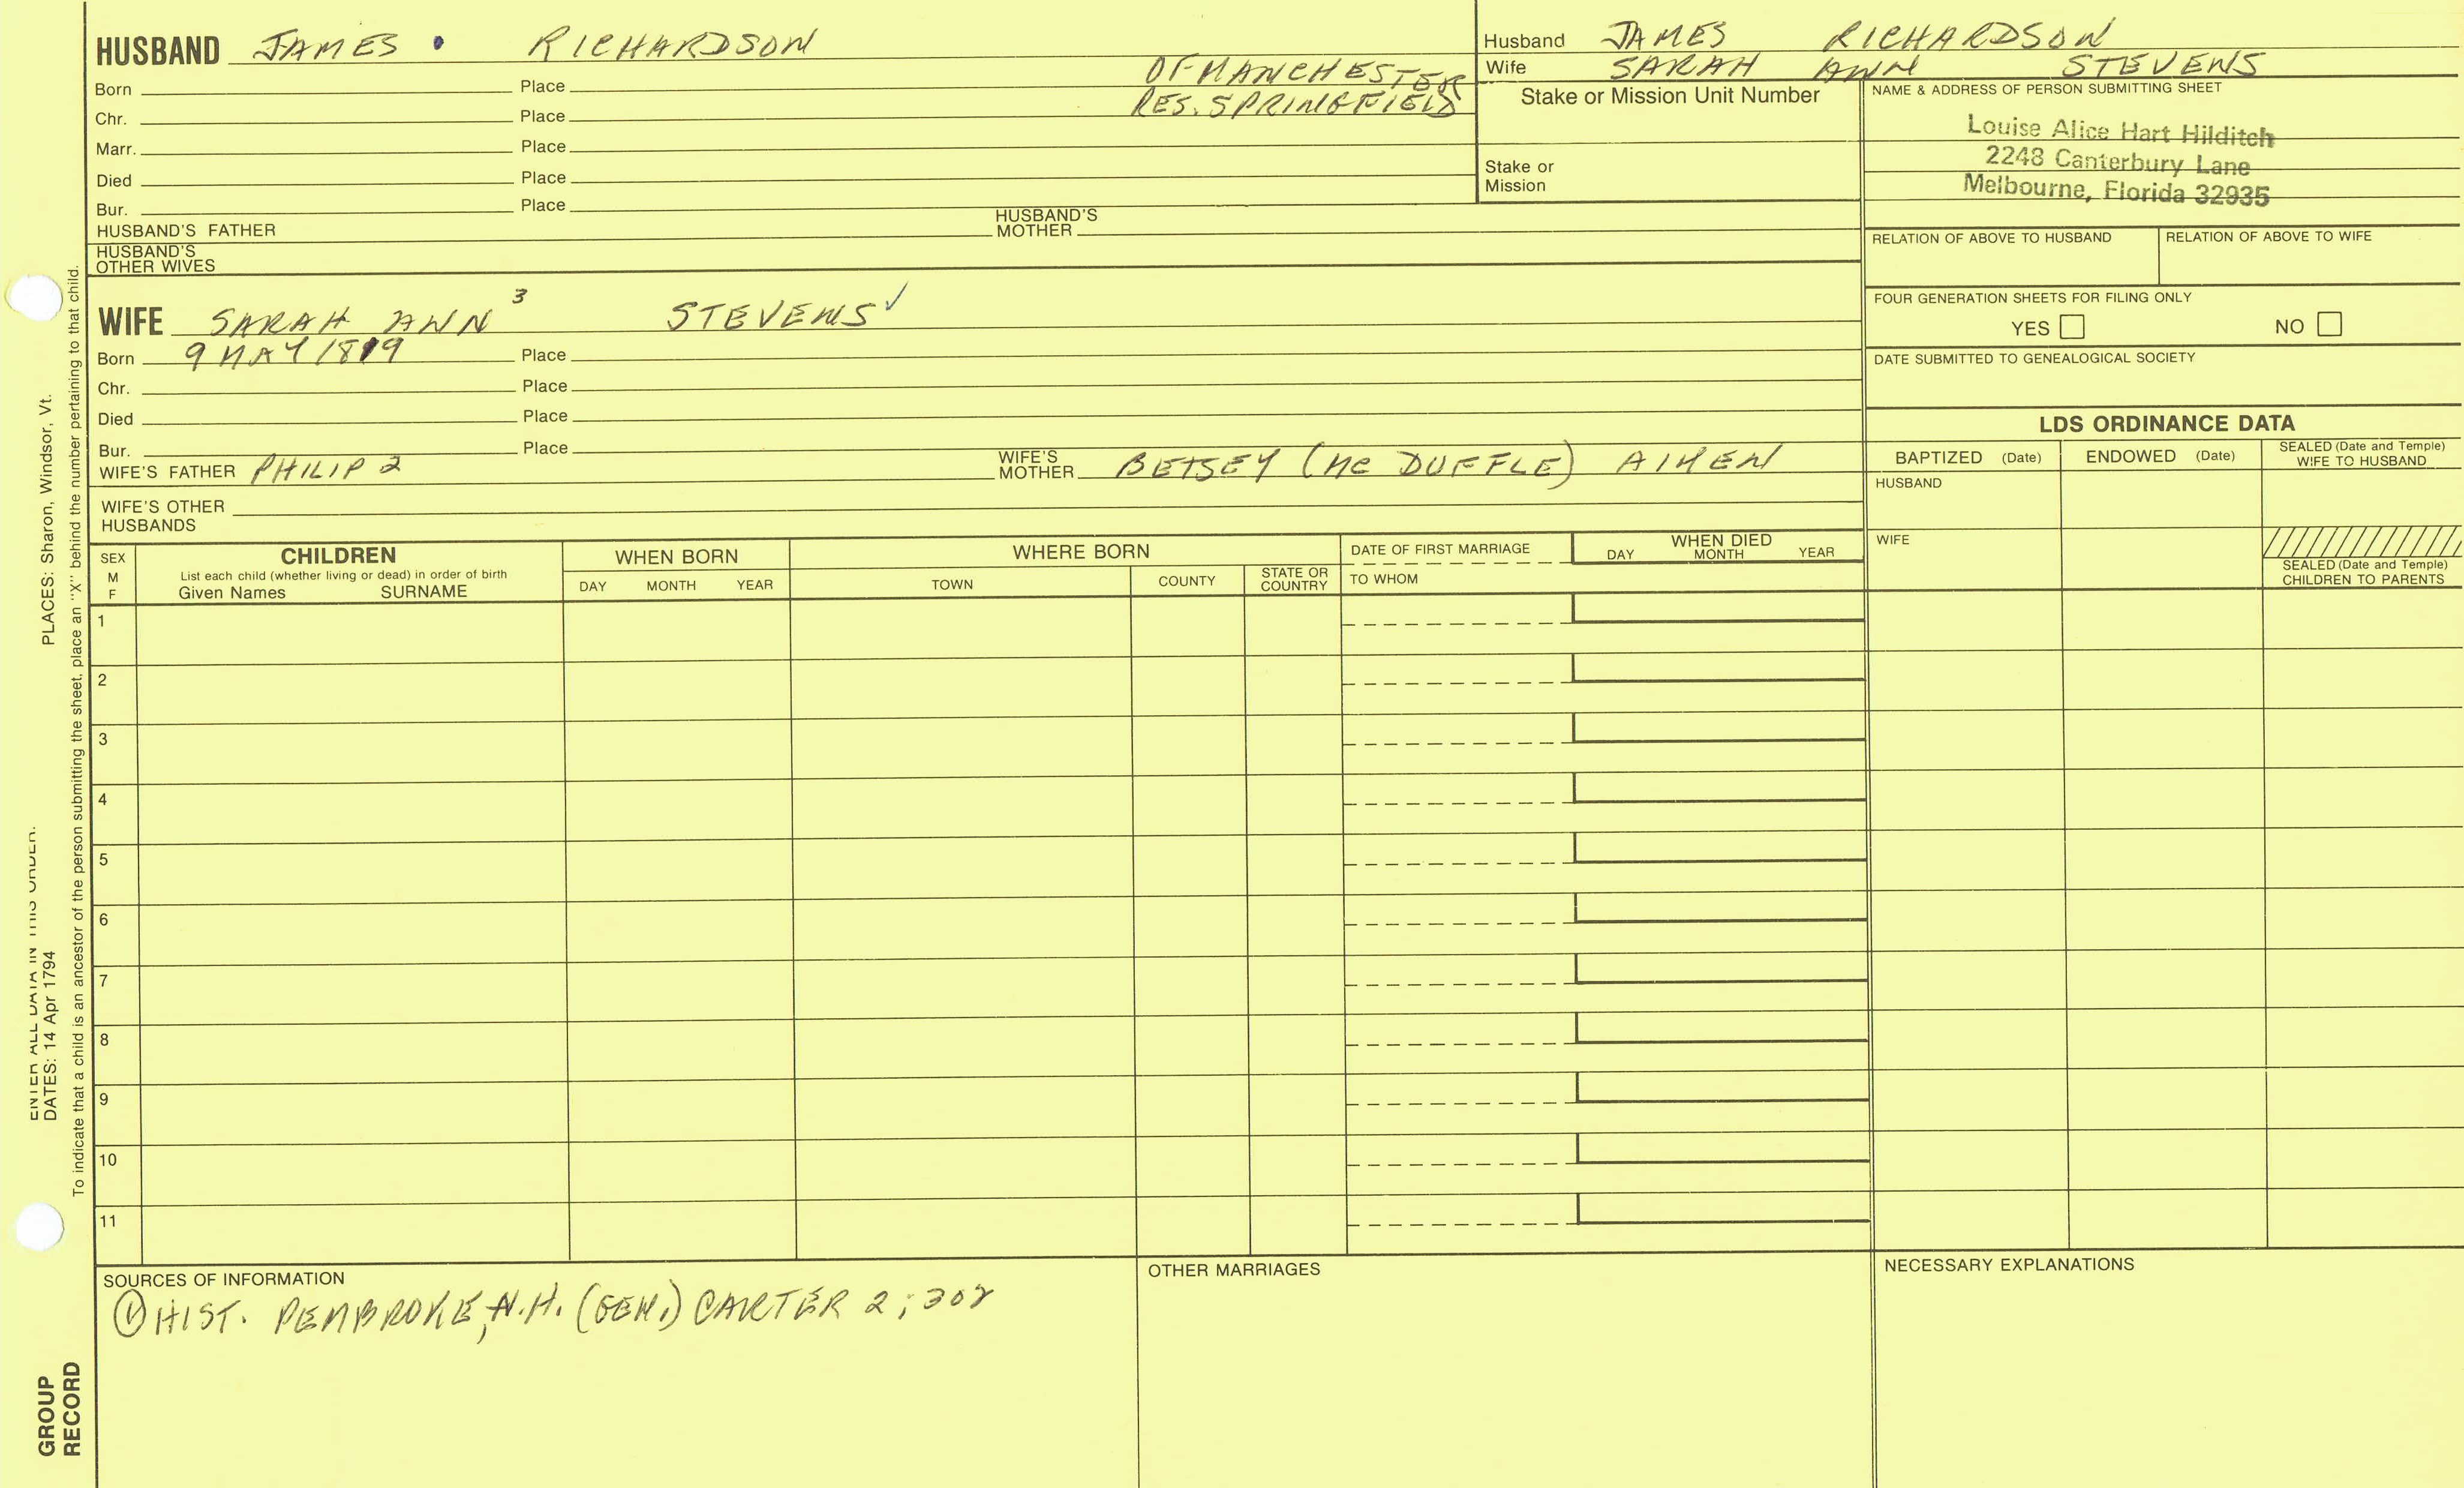 HUSBAND JAMES RICHARDSON
OF MANCHESTER
Born Place RES. SPRINGFIELD
Chr. Place
Marr. Place
Died Place
Bur. Place
HUSBAND'S FATHER HUSBAND'S MOTHER
HUSBAND'S OTHER WIVES
Husband JAMES RICHARDSON
Wife SARAH ANN STEVENS
Stake or Mission Unit Number
Stake or Mission
NAME & ADDRESS OF PERSON SUBMITTING SHEET
Louise Alice Hart Hilditch
2248 Canterbury Lane
Melbourne, Florida 32935
RELATION OF ABOVE TO HUSBAND RELATION OF ABOVE TO WIFE
FOUR GENERATION SHEETS FOR FILING ONLY
YES NO
DATE SUBMITTED TO GENEALOGICAL SOCIETY
WIFE SARAH ANN 3 STEVENS ✓
Born 9 MAY 1819 Place
Chr. Place
Died Place
Bur. Place
WIFE'S FATHER PHILIP 2 WIFE'S MOTHER BETSEY (MC DUFFLE) AIKEN
WIFE'S OTHER HUSBANDS
LDS ORDINANCE DATA
BAPTIZED (Date) ENDOWED (Date) SEALED (Date and Temple) WIFE TO HUSBAND
HUSBAND
WIFE
SEALED (Date and Temple) CHILDREN TO PARENTS
SEX M F
CHILDREN
List each child (whether living or dead) in order of birth
Given Names SURNAME
WHEN BORN
DAY MONTH YEAR
WHERE BORN
TOWN COUNTY STATE OR COUNTRY
DATE OF FIRST MARRIAGE
TO WHOM
WHEN DIED
DAY MONTH YEAR
1
2
3
4
5
6
7
8
9
10
11
SOURCES OF INFORMATION
① HIST. PEMBROKE, N.H. (GEN.) CARTER 2; 302
OTHER MARRIAGES
NECESSARY EXPLANATIONS
ENTER ALL DATA IN THIS ORDER:
DATES: 14 Apr 1794 PLACES: Sharon, Windsor, Vt.
To indicate that a child is an ancestor of the person submitting the sheet, place an "X" behind the number pertaining to that child.
GROUP
RECORD